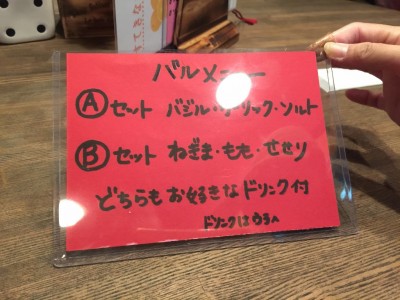 バルメニュー
Ⓐセット バジル・ガーリック・ソルト
Ⓑセット ねぎま・もも・せせり
どちらもお好きなドリンク付
ドリンクはうらへ